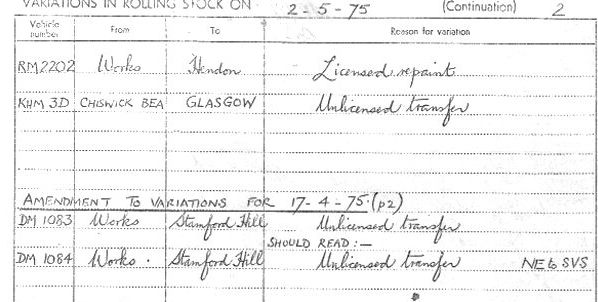 VARIATIONS IN ROLLING STOCK ON 2-5-75 (Continuation) 2
Vehicle number From To Reason for variation
RM2202 Works Hendon Licensed repaint
KHM 3D CHISWICK BEA GLASGOW Unlicensed transfer
AMENDMENT TO VARIATIONS FOR 17-4-75. (p2)
DM 1083 Works Stamford Hill Unlicensed transfer
SHOULD READ :—
DM 1084 Works . Stamford Hill Unlicensed transfer NE to SVS